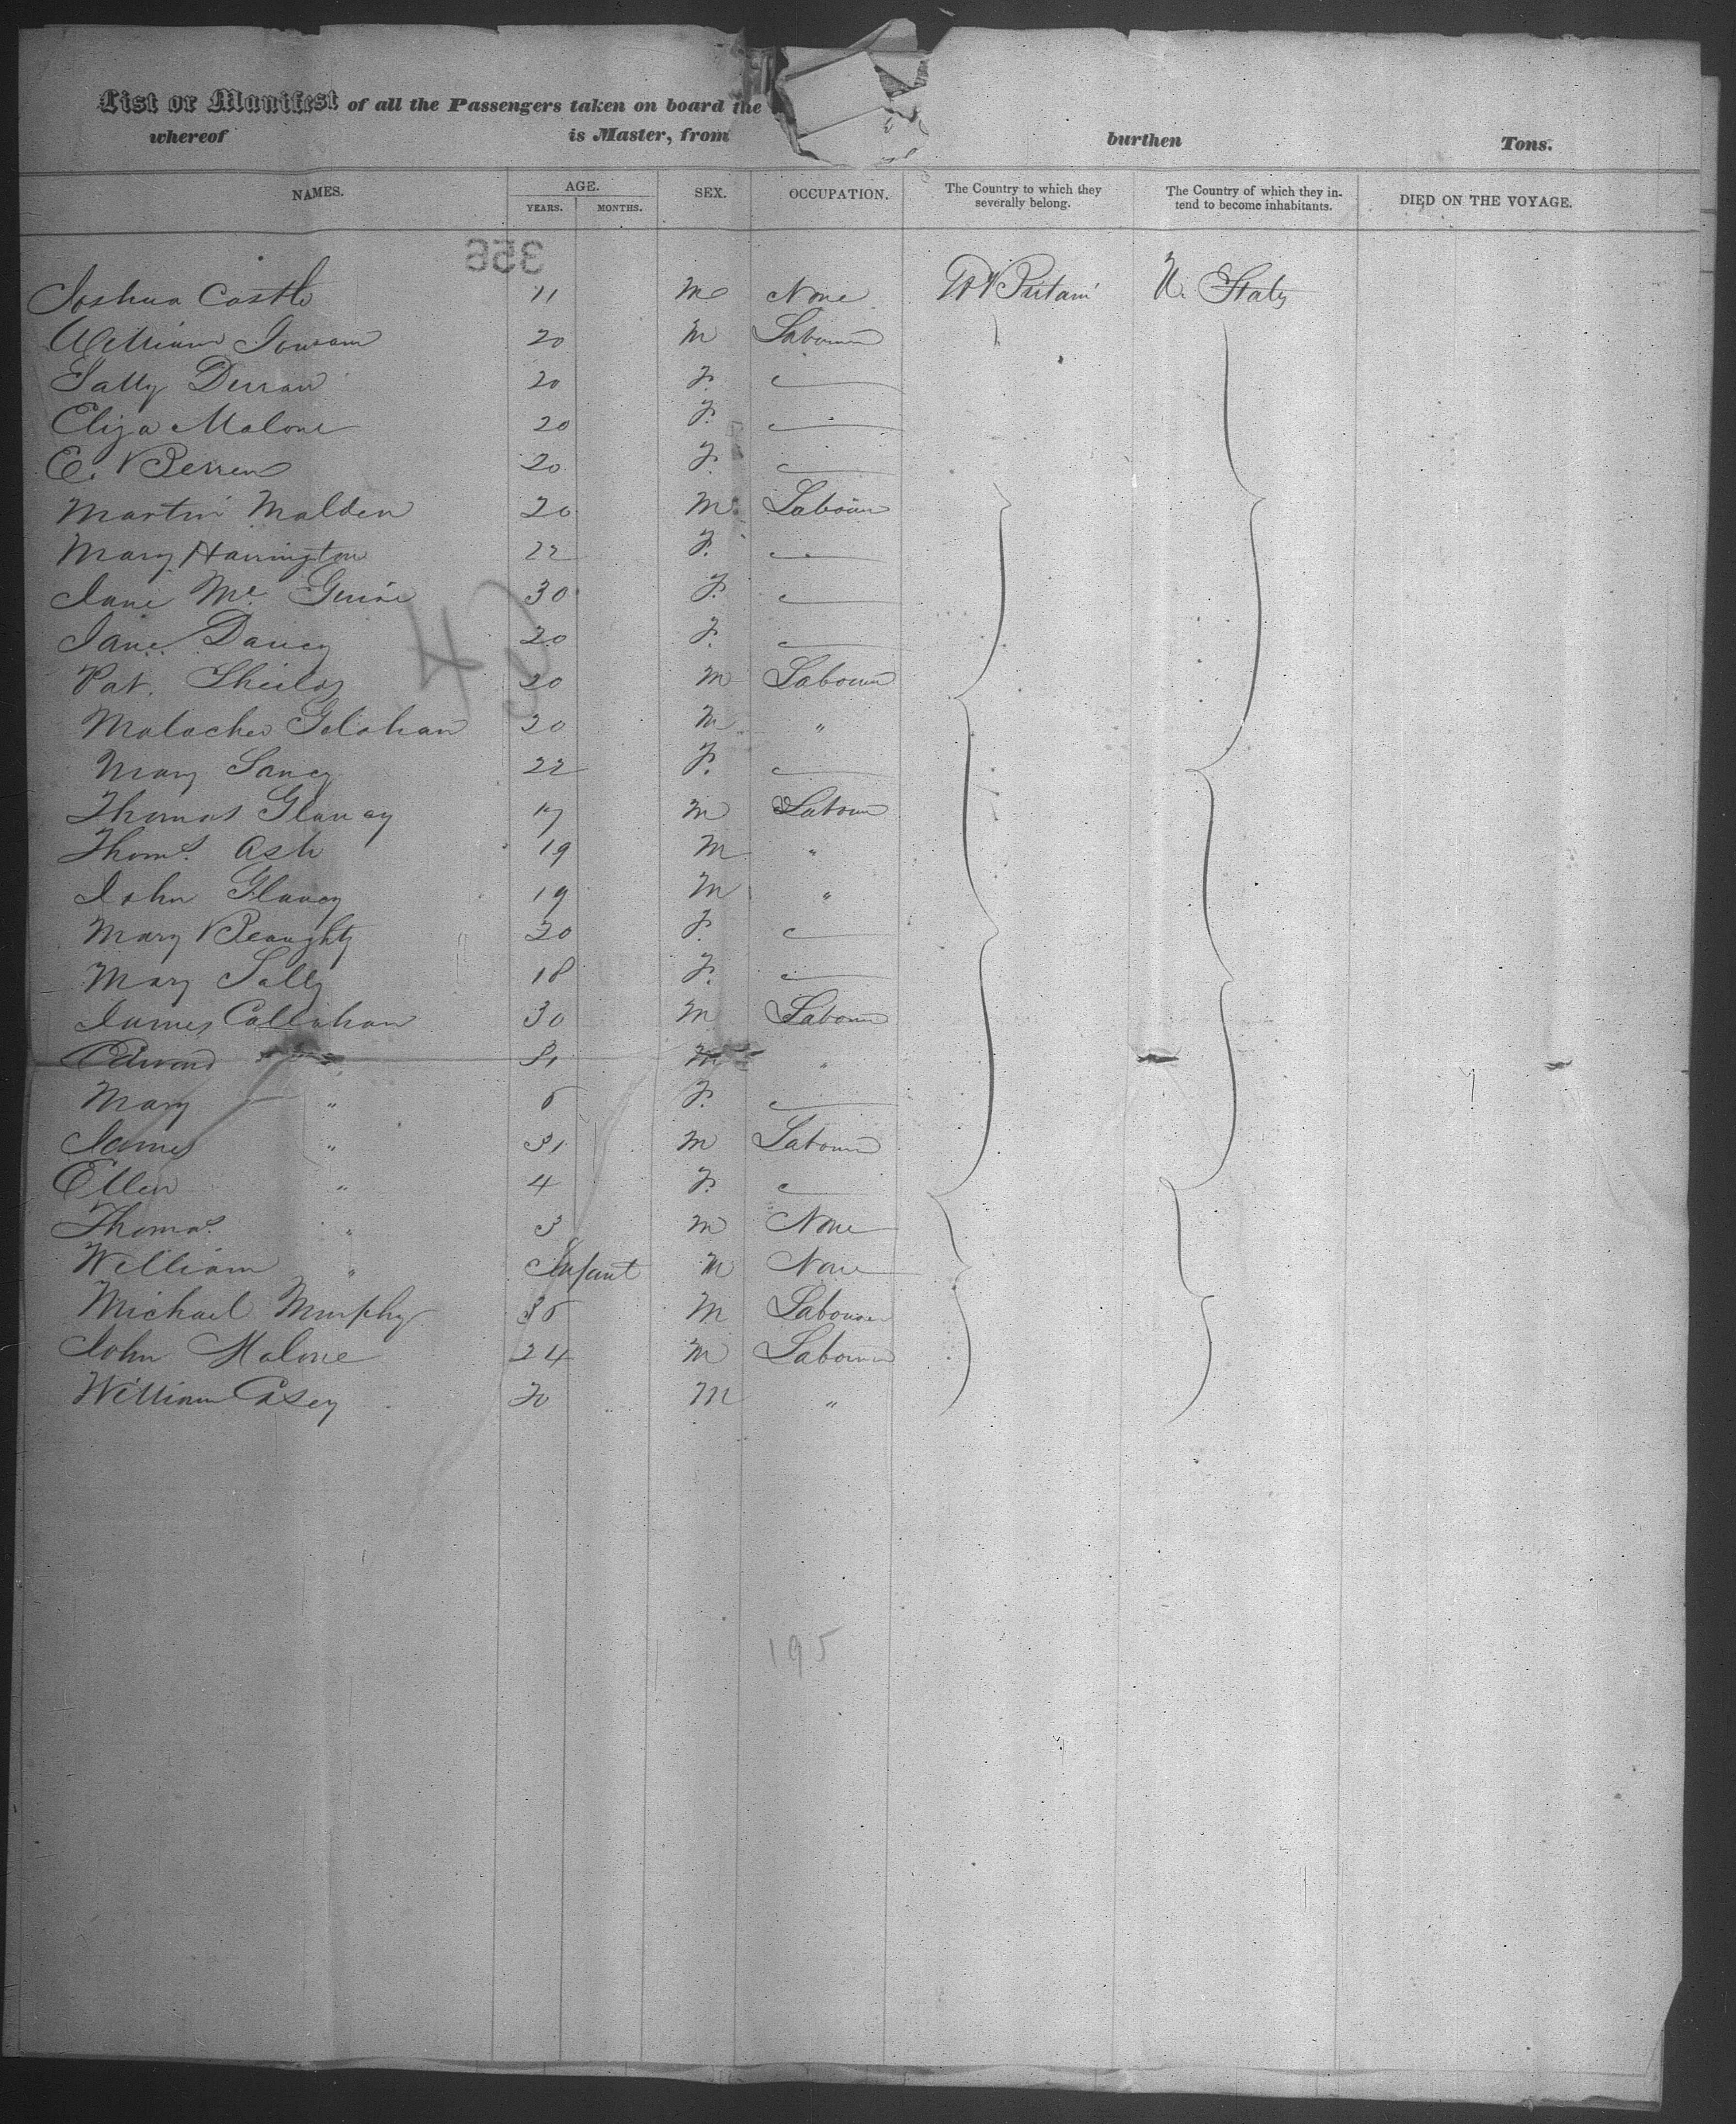 List or Manifest of all the Passengers taken on board the
whereof is Master, from burthen Tons.
NAMES. AGE. SEX. OCCUPATION. The Country to which they severally belong. The Country of which they intend to become inhabitants. DIED ON THE VOYAGE.
YEARS. MONTHS.
356
Joshua Castle 11 M None Gt Britain U. States
William 20 M Labourer
Sally 20 F.
Eliza Malone 20 F.
E. 20 F.
Martin Malden 20 M. Labourer
Mary Harrington 22 F.
Jane Mc Guire 30 F.
Jane Darcy 20 F.
Pat. 20 M Labourer
20 M "
Mary 22 F.
Thomas Glancy 17 M Labourer
Thoms. Ash 19 M "
John Glancy 19 M "
Mary 20 F.
Mary Lally 18 F.
James Callahan 30 M Labourer
Edward M "
Mary " F.
James " M Labourer
Ellen " 4 F.
Thomas " 3 M None
William " Infant M None
Michael Murphy M Labourer
John Malone 24 M Labourer
William Casey 20 M "
195